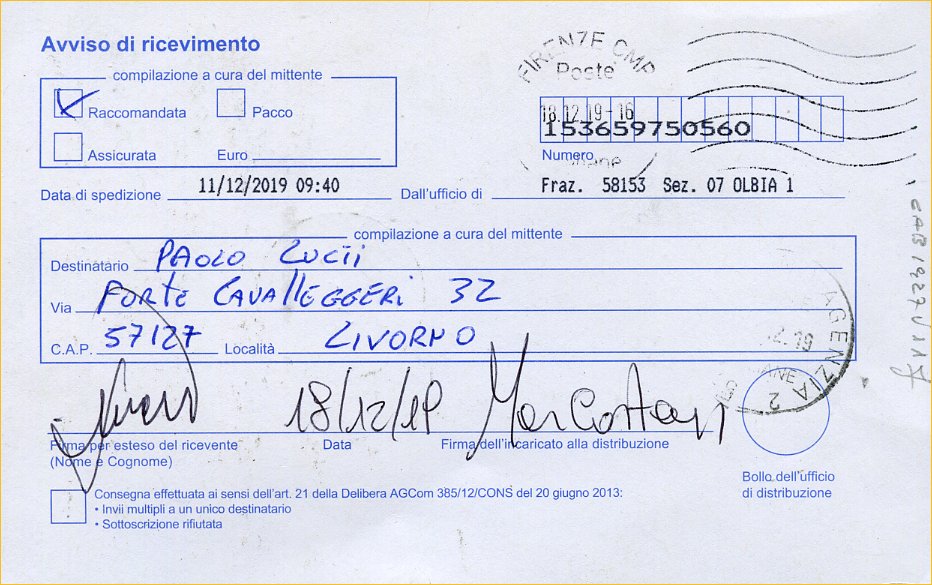 Avviso di ricevimento
FIRENZE CMP
Poste
compilazione a cura del mittente
Raccomandata
Pacco
18.12.19-16
153659750560
Assicurata
Euro
Numero
Data di spedizione 11/12/2019 09:40 Dall'ufficio di Fraz. 58153 Sez. 07 OLBIA 1
compilazione a cura del mittente
Destinatario PAOLO
Via FORTE CAVALLEGGERI 32
C.A.P. 57127 Località LIVORNO
AGENZIA 2
18/12/19
Firma per esteso del ricevente
(Nome e Cognome)
Data
Firma dell'incaricato alla distribuzione
Bollo dell'ufficio
di distribuzione
Consegna effettuata ai sensi dell'art. 21 della Delibera AGCom 385/12/CONS del 20 giugno 2013:
• Invii multipli a un unico destinatario
• Sottoscrizione rifiutata